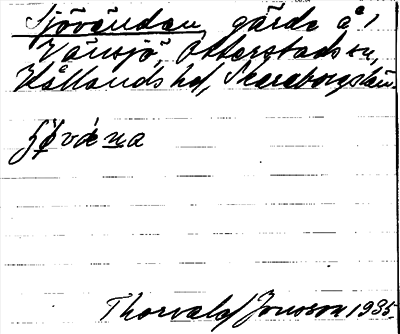 Sjövändan, gärde å 1
Vänsjö, Otterstads sn,
Kållands hd, Skaraborgs län.
Thorvald Jonsson 1935